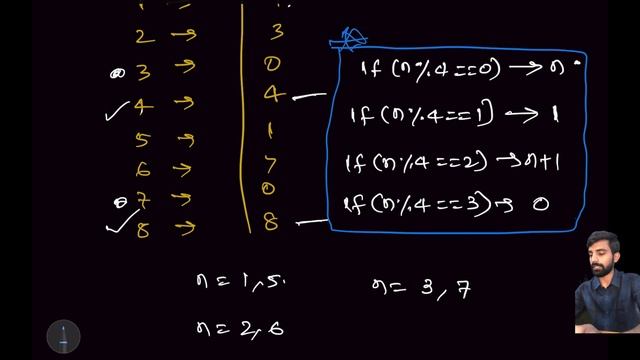 2 → 3
3 → 0
if (n%4==0) → n
4 → 4
if (n%4==1) → 1
5 → 1
6 → 7
if (n%4==2) → n+1
7 → 0
if (n%4==3) → 0
8 → 8
n = 1, 5
n = 3, 7
n = 2, 6